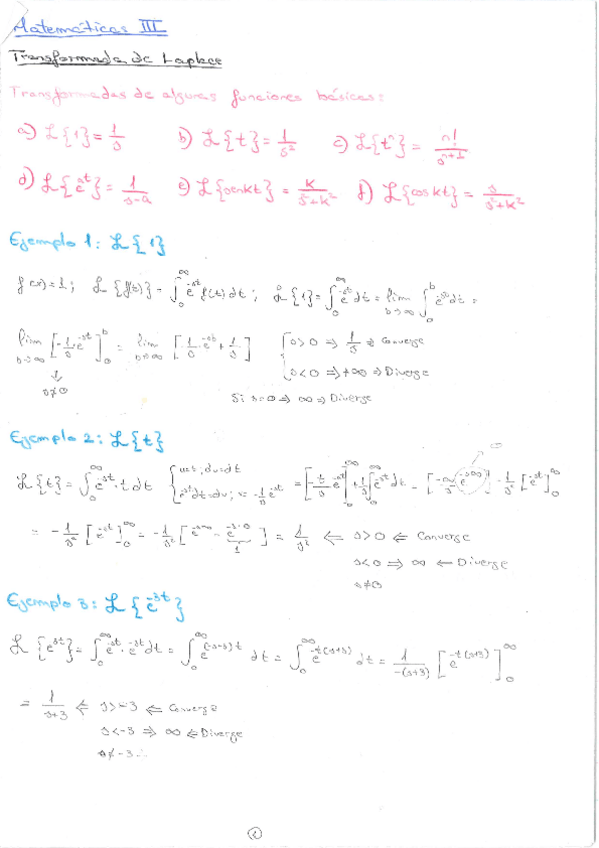 Matemáticas III
Transformada de Laplace
Transformadas de algunas funciones básicas:
a) ℒ{1} = 1/s b) ℒ{t} = 1/s² c) ℒ{tⁿ} = n!/sⁿ⁺¹
d) ℒ{e^at} = 1/(s-a) e) ℒ{sen kt} = k/(s²+k²) f) ℒ{cos kt} = s/(s²+k²)
Ejemplo 1: ℒ{1}
f(x)=1; ℒ{f(t)} = ∫₀^∞ e^-st f(t) dt; ℒ{1} = ∫₀^∞ e^-st dt = lim b→∞ ∫₀^b e^-st dt =
lim b→∞ [-1/s · e^-st]₀^b = lim b→∞ [-1/s · e^-sb + 1/s] { s>0 ⇒ 1/s ⇒ Converge
s≠0 s<0 ⇒ +∞ ⇒ Diverge
Si s=0 ⇒ ∞ ⇒ Diverge
Ejemplo 2: ℒ{t}
ℒ{t} = ∫₀^∞ e^-st · t dt { u=t; du=dt
e^-st dt=dv; v=-1/s e^-st = [-t/s e^-st]₀^∞ + 1/s ∫₀^∞ e^-st dt = - 1/s² [e^-st]₀^∞
= -1/s² [e^-st]₀^∞ = -1/s² [e^-s∞ - e^-s·0] = 1/s² ⇐ s>0 ⇐ Converge
1 s<0 ⇒ ∞ ⇐ Diverge
s≠0
Ejemplo 3: ℒ{e^-3t}
ℒ{e^-3t} = ∫₀^∞ e^-st · e^-3t dt = ∫₀^∞ e^(-s-3)t dt = ∫₀^∞ e^-t(s+3) dt = 1/-(s+3) [e^-t(s+3)]₀^∞
= 1/(s+3) ⇐ s>-3 ⇐ Converge
s<-3 ⇒ ∞ ⇐ Diverge
s≠-3